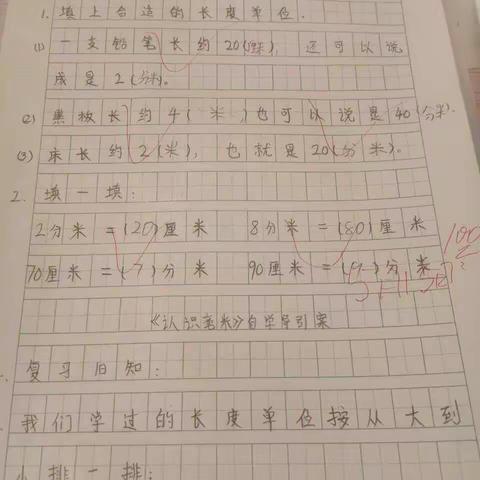 1. 填上合适的长度单位.
(1) 一支铅笔长约20(厘米), 还可以说
成是2(分米)。
(2) 黑板长约4(米)也可以说是40(分米).
(3) 床长约2(米), 也就是20(分米)。
2. 填一填:
2分米=(20)厘米 8分米=(80)厘米
70厘米=(7)分米 90厘米=(9)分米
100
《认识毫米》自学导引案
复习旧知:
我们学过的长度单位按从大到
小排一排: